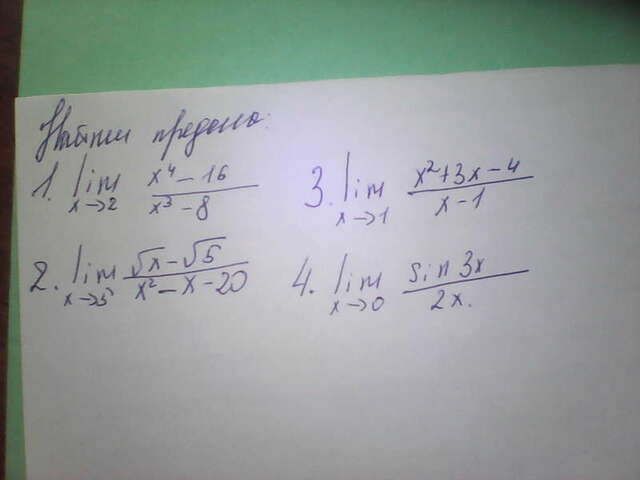 Найти пределы:
1. lim x→2 (x⁴ - 16)/(x³ - 8)
3. lim x→1 (x² + 3x - 4)/(x - 1)
2. lim x→5 (√x - √5)/(x² - x - 20)
4. lim x→0 sin 3x/2x.